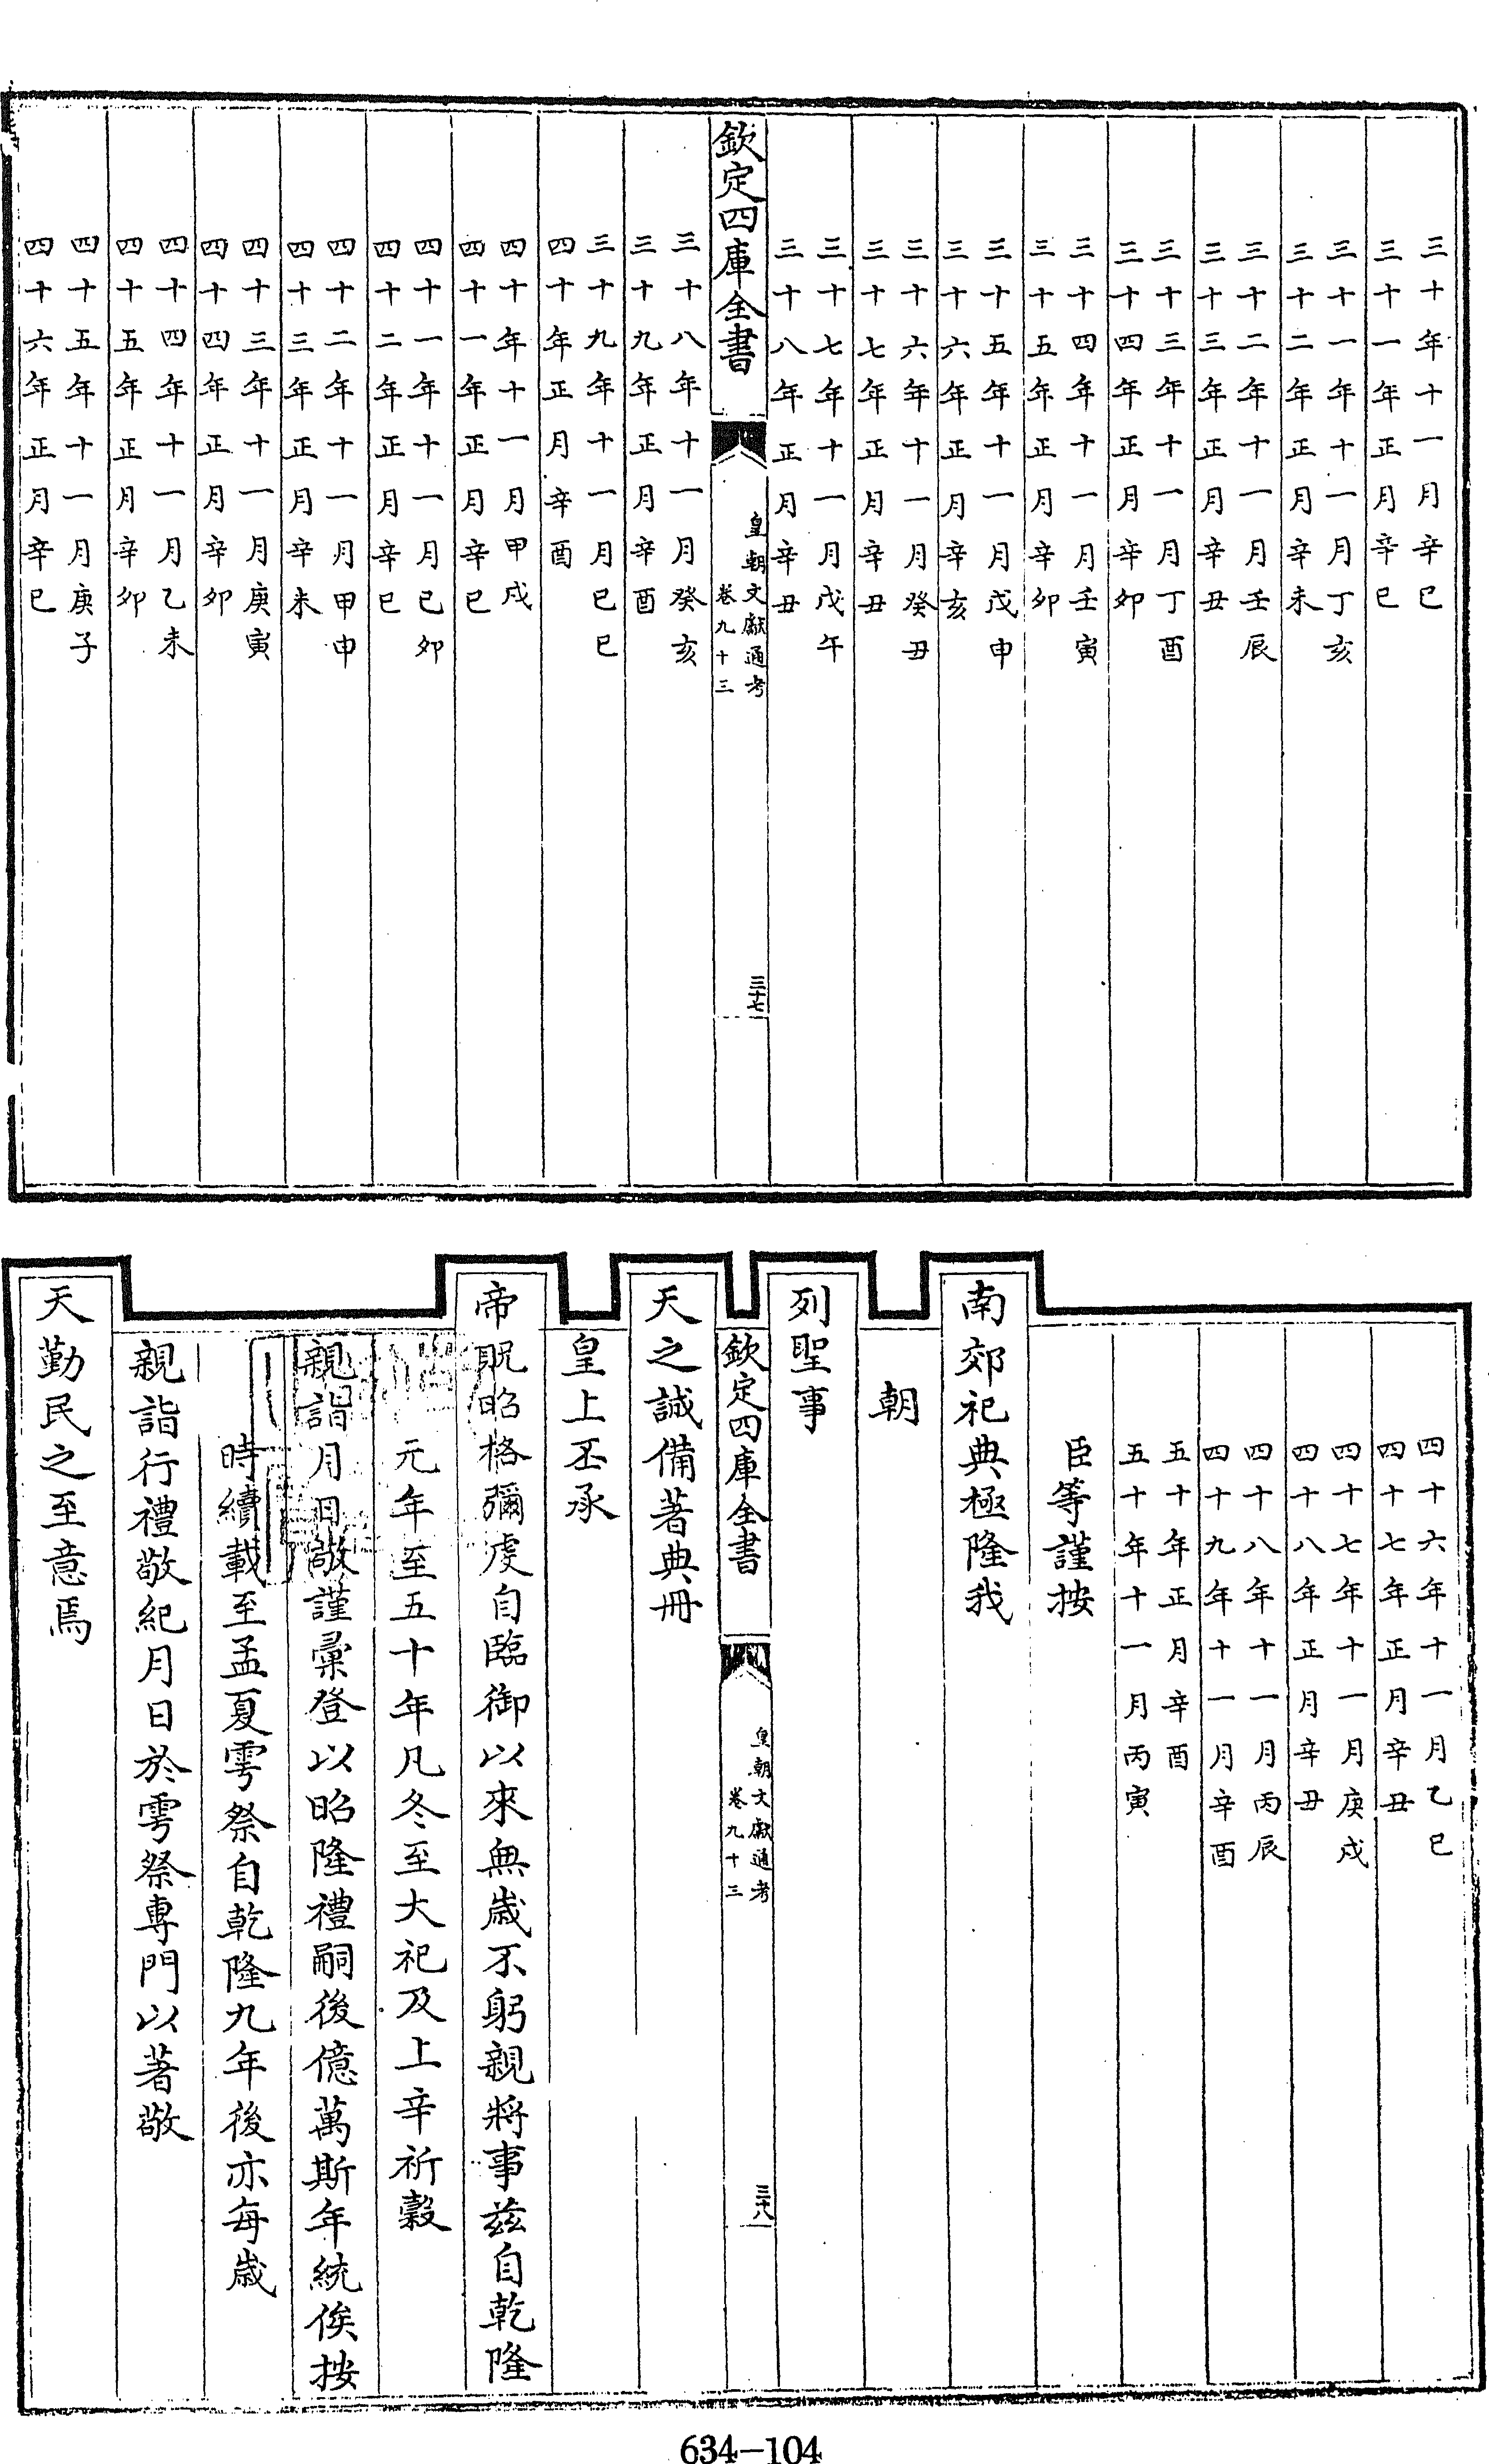 三十年十一月辛巳
三十一年正月辛巳
三十一年十一月丁亥
三十二年正月辛未
三十二年十一月壬辰
三十三年正月辛丑
三十三年十一月丁酉
三十四年正月辛卯
三十四年十一月壬寅
三十五年正月辛卯
三十五年十一月戊申
三十六年正月辛亥
三十六年十一月癸丑
三十七年正月辛丑
三十七年十一月戊午
三十八年正月辛丑
欽定四庫全書
皇朝文獻通考
卷九十三
三十七
三十八年十一月癸亥
三十九年正月辛酉
三十九年十一月己巳
四十年正月辛酉
四十年十一月甲戌
四十一年正月辛巳
四十一年十一月己卯
四十二年正月辛巳
四十二年十一月甲申
四十三年正月辛未
四十三年十一月庚寅
四十四年正月辛卯
四十四年十一月乙未
四十五年正月辛卯
四十五年十一月庚子
四十六年正月辛巳
四十六年十一月乙巳
四十七年正月辛丑
四十七年十一月庚戌
四十八年正月辛丑
四十八年十一月丙辰
四十九年十一月辛酉
五十年正月辛酉
五十年十一月丙寅
臣等謹按
南郊祀典極隆我
朝
列聖事
欽定四庫全書
皇朝文獻通考
卷九十三
三十八
天之誠備著典冊
皇上丕承
帝貺昭格彌虔自臨御以來無歲不躬親將事茲自乾隆
元年至五十年凡冬至大祀及上辛祈穀
親詣月日敬謹彙登以昭隆禮嗣後億萬斯年統俟按
時續載至孟夏雩祭自乾隆九年後亦每歲
親詣行禮敬紀月日於雩祭專門以著敬
天勤民之至意焉
634-104